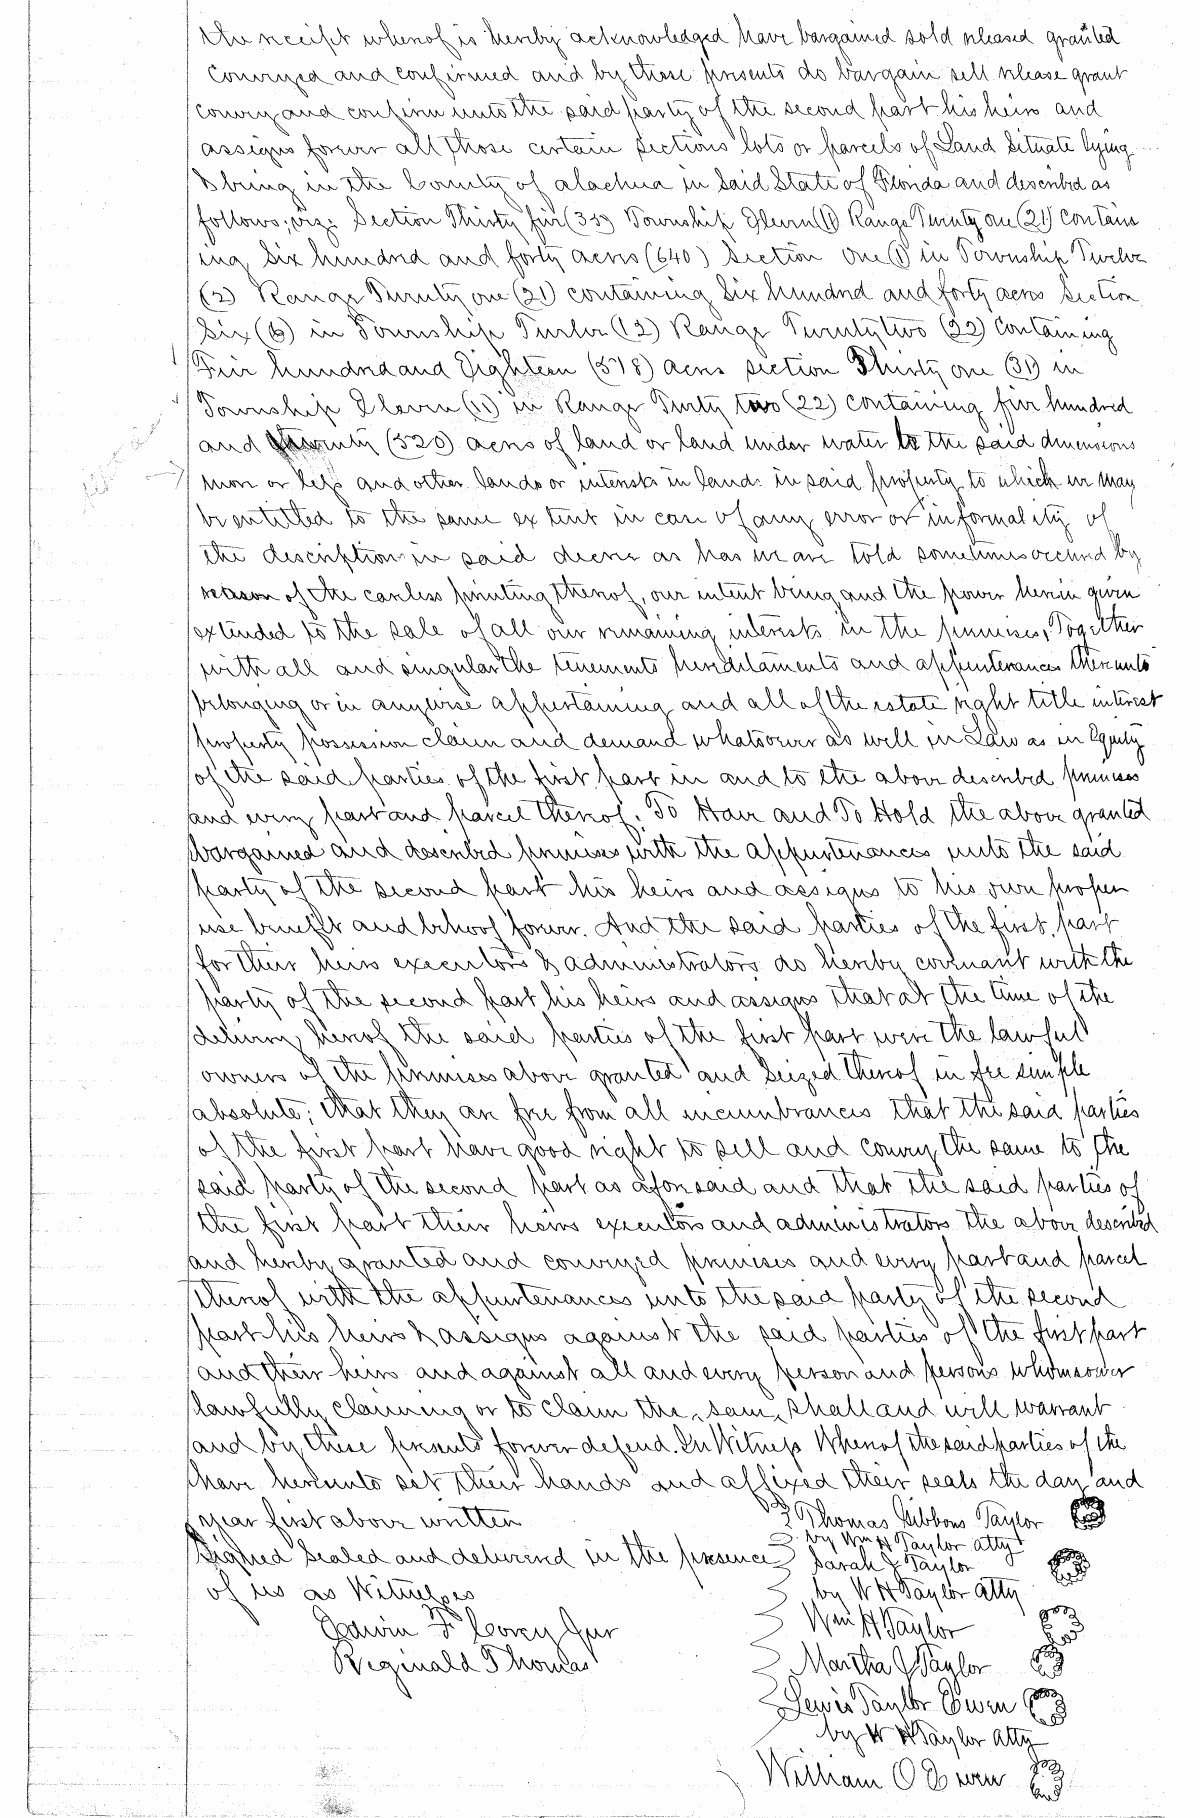 the receipt whereof is hereby acknowledged have bargained sold released granted
conveyed and confirmed and by these presents do bargain sell release grant
convey and confirm unto the said party of the second part his heirs and
assigns forever all those certain sections lots or parcels of Land Situate lying
& being in the County of Alachua in Said State of Florida and described as
follows; viz: Section Thirty five (35) Township Eleven (11) Range Twenty one (21) contain
ing Six hundred and forty acres (640) Section One (1) in Township Twelve
(12) Range Twenty one (21) containing Six hundred and forty acres Section
Six (6) in Township Twelve (12) Range Twenty two (22) containing
Five hundred and Eighteen (518) acres section Thirty one (31) in
Township Eleven (11) in Range Twenty two (22) containing five hundred
and twenty (520) acres of land or land under water to the said dimensions
more or less and other lands or interests in lands in said property to which we may
be entitled to the same extent in case of any error or informality of
the description in said decree as has we are told sometimes occured by
reason of the careless printing thereof, our intent being and the power herein given
extended to the sale of all our remaining interests in the premises, Together
with all and singular the tenements hereditaments and appurtenances thereunto
belonging or in anywise appertaining and all of the estate right title interest
property possession claim and demand whatsoever as well in Law as in Equity
of the said parties of the first part in and to the above described premises
and every part and parcel thereof. To Have and To Hold the above granted
bargained and described premises with the appurtenances unto the said
party of the second part his heirs and assigns to his own proper
use benefit and behoof forever. And the said parties of the first part
for their heirs executors & administrators do hereby covenant with the
party of the second part his heirs and assigns that at the time of the
delivery hereof the said parties of the first part were the lawful
owners of the premises above granted and Seized thereof in fee simple
absolute; that they are free from all incumbrances that the said parties
of the first part have good right to sell and convey the same to the
said party of the second part as aforesaid and that the said parties of
the first part their heirs executors and administrators the above described
and hereby granted and conveyed premises and every part and parcel
thereof with the appurtenances unto the said party of the second
part his heirs & assigns against the said parties of the first part
and their heirs and against all and every person and persons whomsoever
lawfully claiming or to claim the same shall and will warrant
and by these presents forever defend. In Witness Whereof the said parties of the
have hereunto set their hands and affixed their seals the day and
year first above written
Thomas Gibbons Taylor
by Wm H Taylor atty
Signed Sealed and delivered in the presence
Sarah J Taylor
of us as Witnesses
by W H Taylor atty
Edwin F Corey Jur
Wm H Taylor
Reginald Thomas
Martha J Taylor
Lewis Taylor Owen
by W H Taylor atty
William O Owen